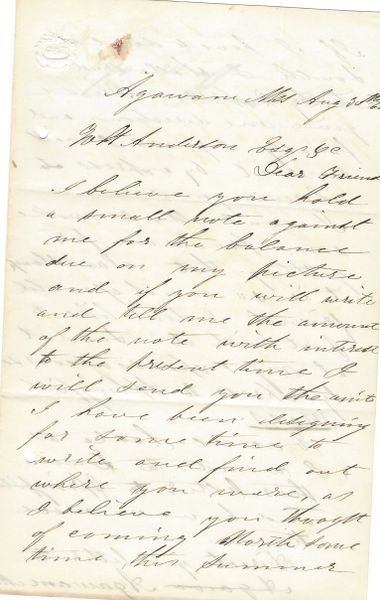 Agawam Mss Aug 3
W H Anderson Esq &c
Dear Friend
I believe you hold
a small note against
me for the balance
due on my picture
and if you will write
and tell me the amount
of the note with interest
to the present time I
will send you the amt
I have been designing
for some time to
write and find out
where you were, as
I believe you thought
of coming North some
time this summer